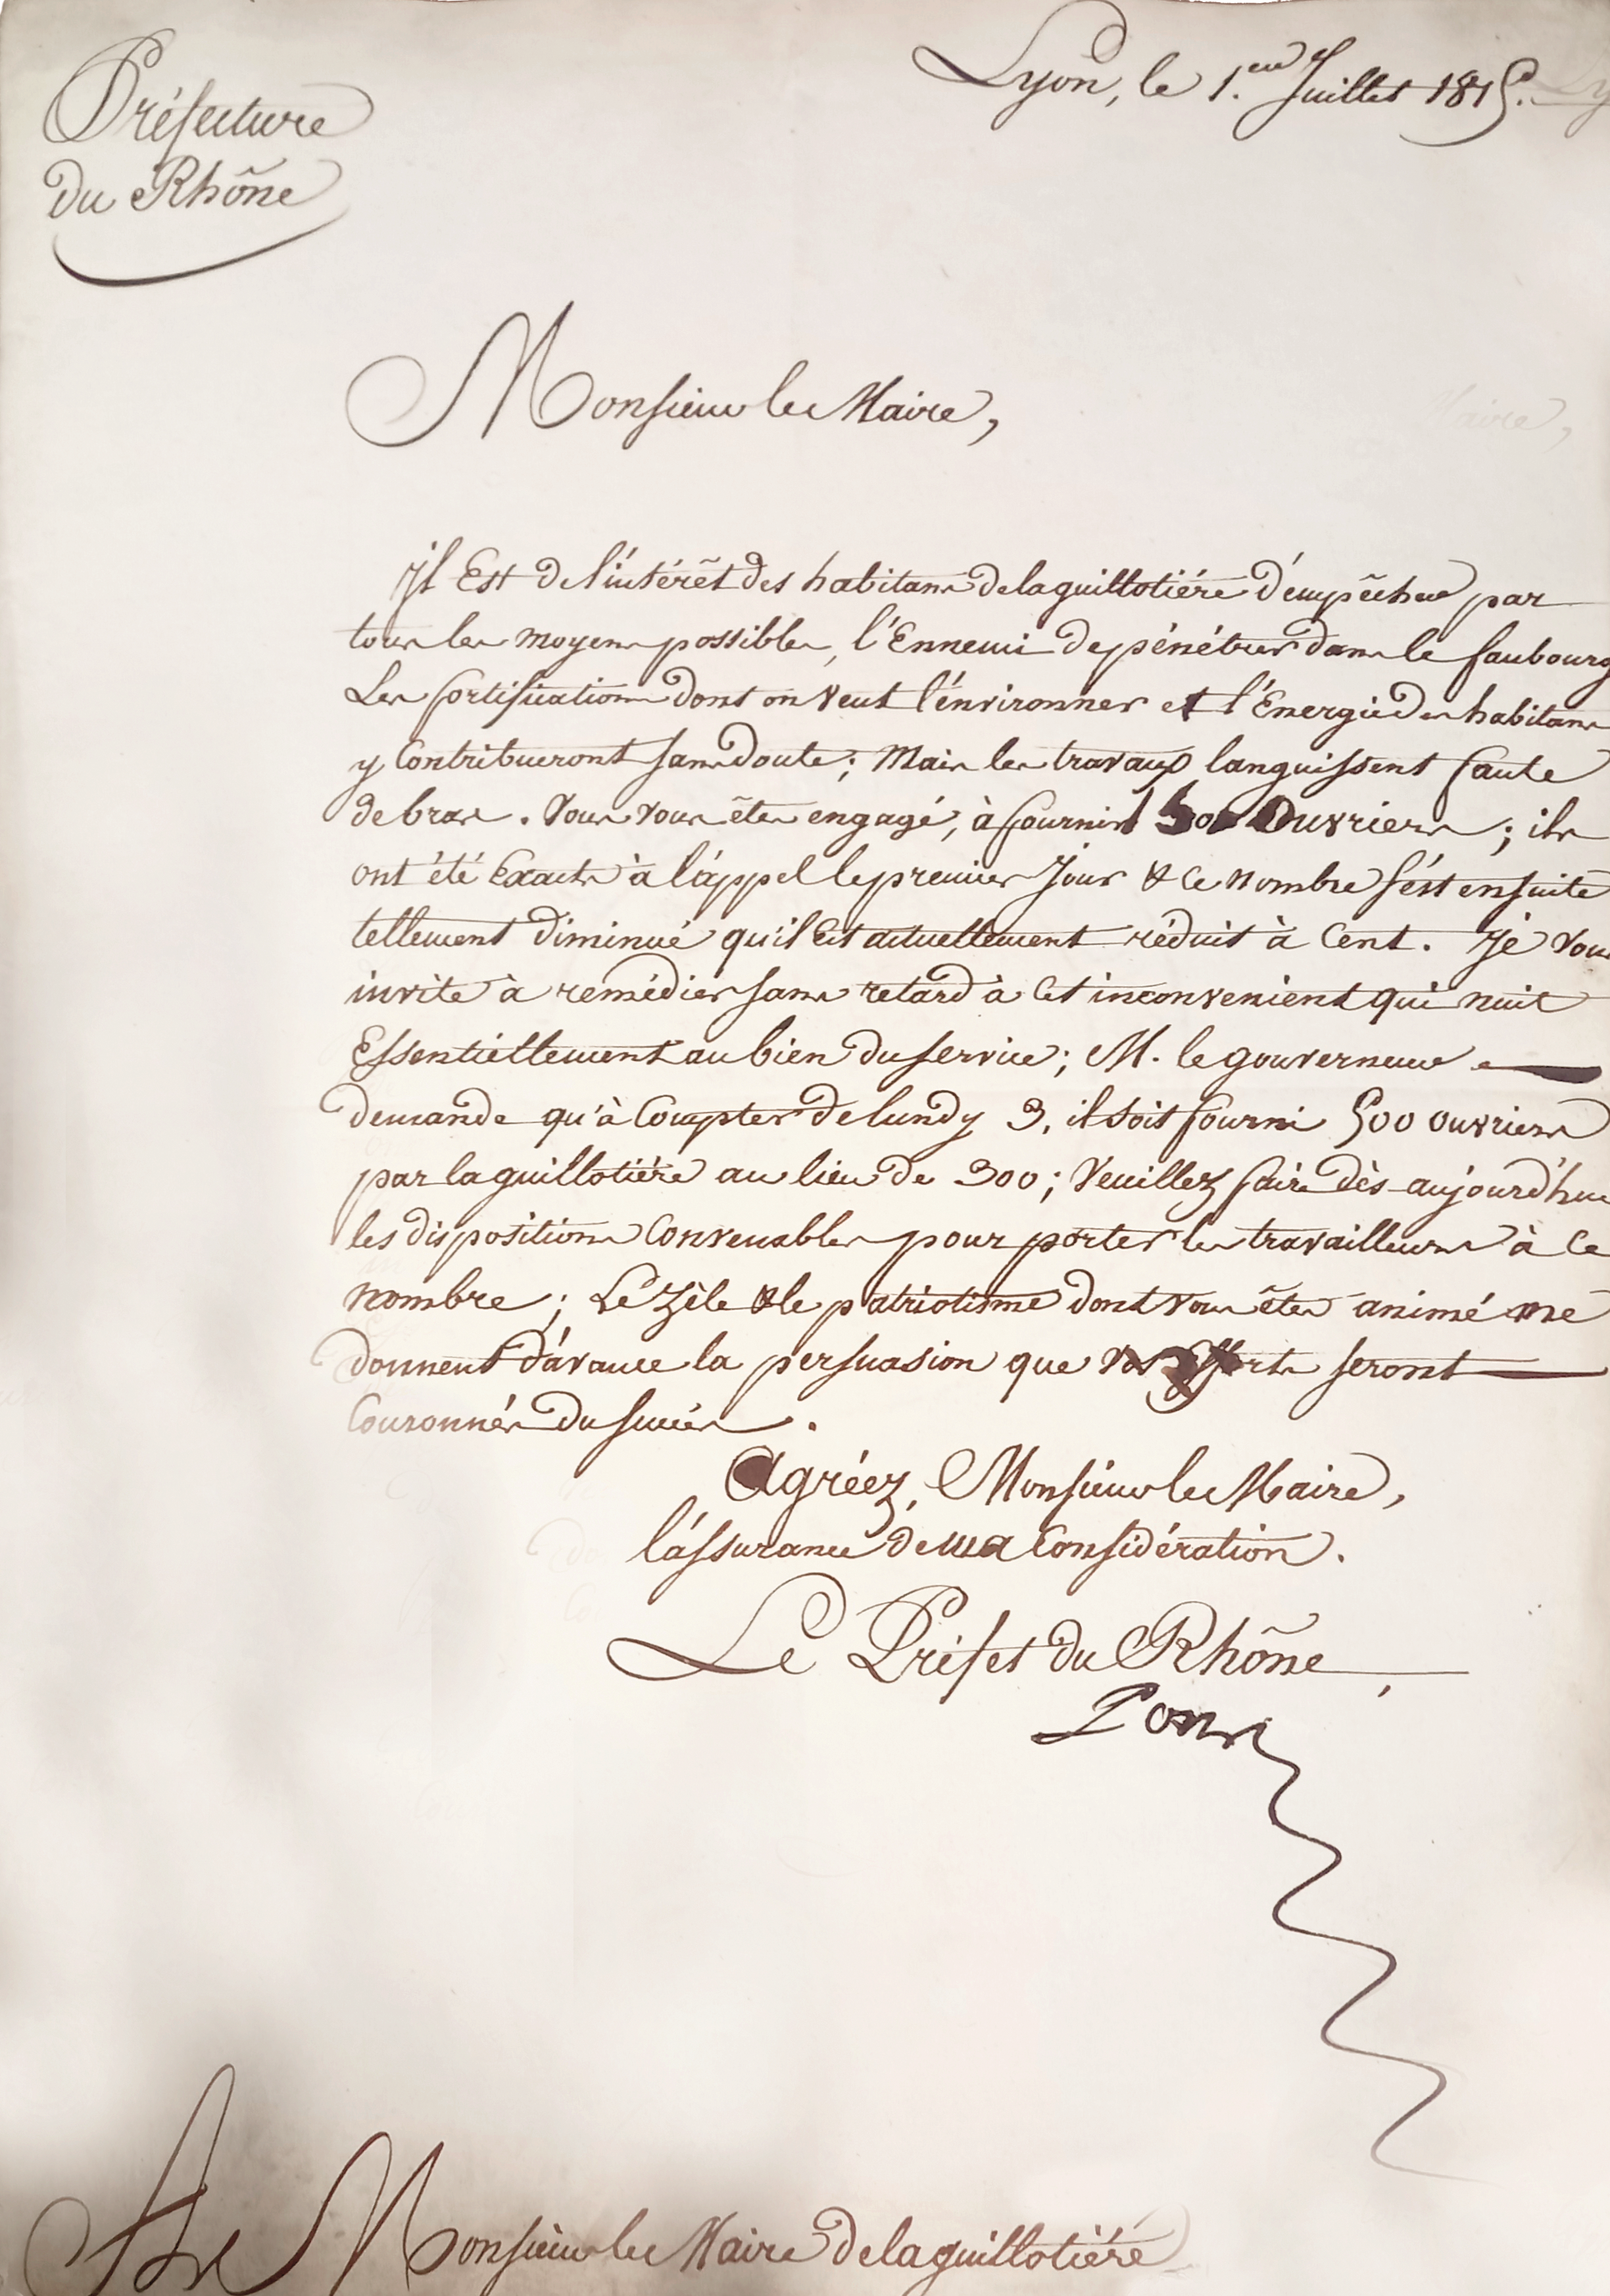 Préfecture
du Rhône
Lyon, le 1.er Juillet 1815.
Monsieur le Maire,
Il Est de l'intérêt des habitans de la guillotière d'empêcher par
tous les moyens possibles, l'Ennemi de pénétrer dans le faubourg
Les fortifications dont on veut l'environner et l'Energie des habitans
y Contribueront sans doute ; Mais les travaux languissent faute
de bras. Vous vous êtes engagé, à fournir Ouvriers ; ils
ont été Exacts à l'appel le premier Jour & ce nombre s'est ensuite
tellement diminué qu'il Est actuellement réduit à Cent. Je vous
invite à remédier sans retard à Cet inconvenient qui nuit
Essentiellement au bien du service ; M. le gouverneur
demande qu'à Compter de lundy 3, il soit fourni 500 ouvriers
par la guillotière au lieu de 300 ; Veuillez faire dès aujourd'hui
les dispositions Convenables pour porter les travailleurs à Ce
nombre ; Le Zèle & le patriotisme dont vous êtes animé me
donnent d'avance la persuasion que vos Efforts seront
Couronnés du succès.
Agréez, Monsieur le Maire,
l'assurance de ma Considération.
Le Préfet du Rhône,
Pons
A Monsieur le Maire de la guillotière